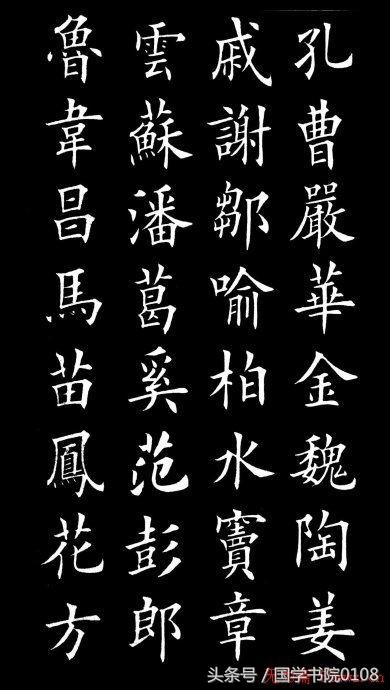 孔曹嚴華金魏陶姜
戚謝鄒喻柏水竇章
雲蘇潘葛奚范彭郎
魯韋昌馬苗鳳花方
头条号／国学书院0108